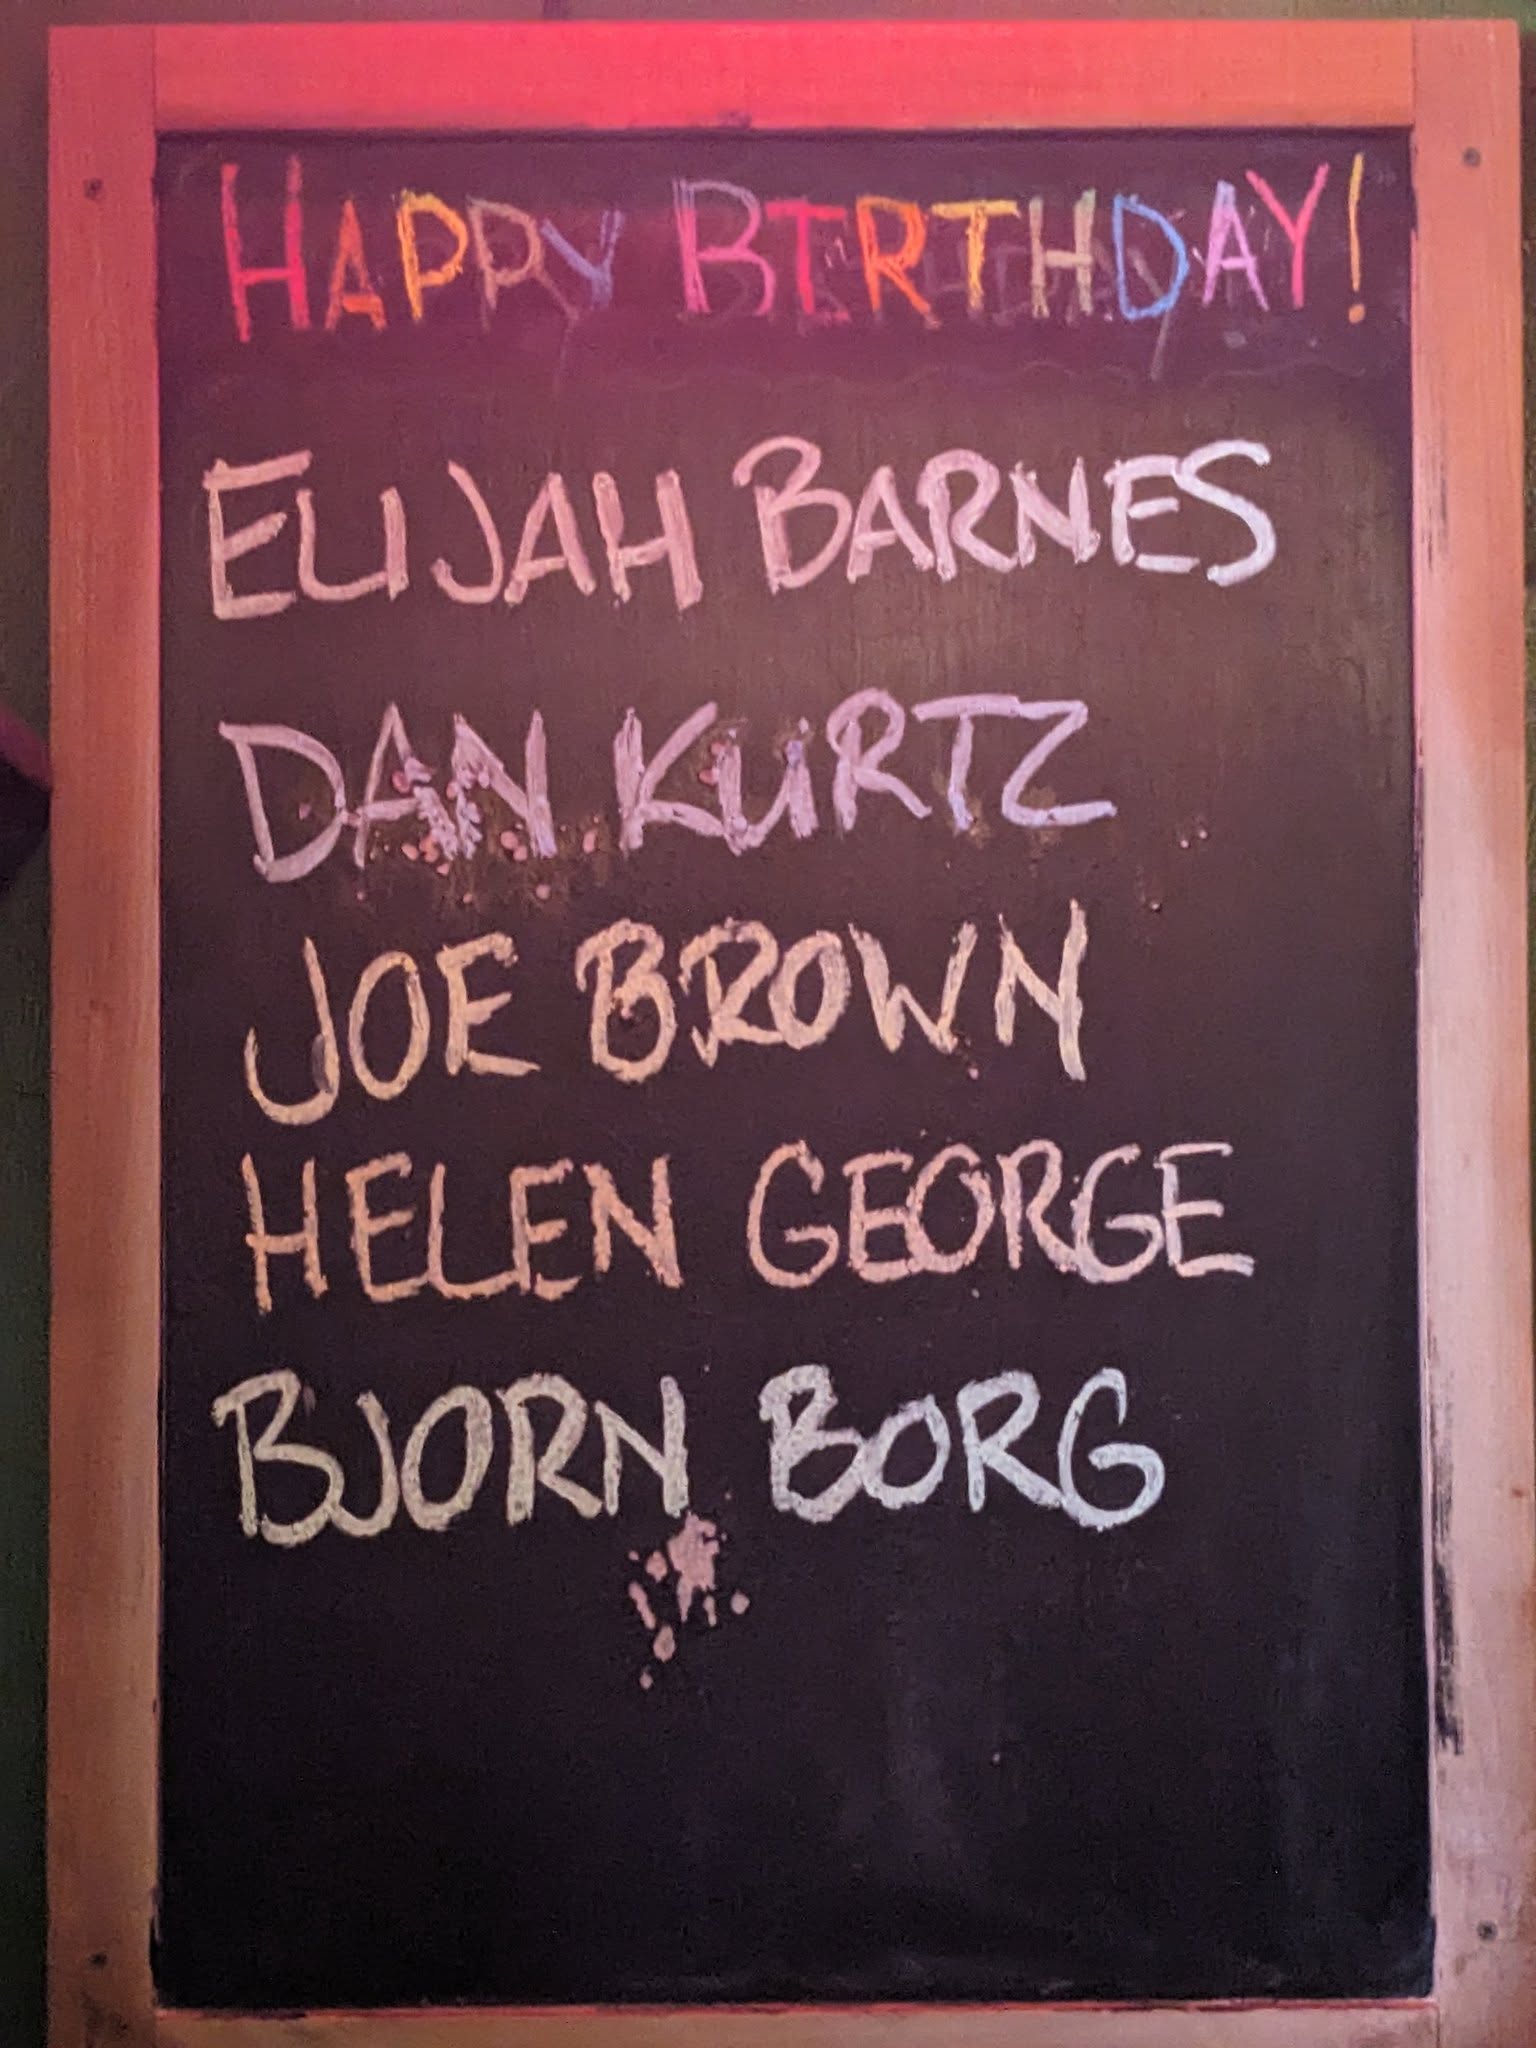 HAPPY BIRTHDAY!
ELIJAH BARNES
DAN KURTZ
JOE BROWN
HELEN GEORGE
BJORN BORG